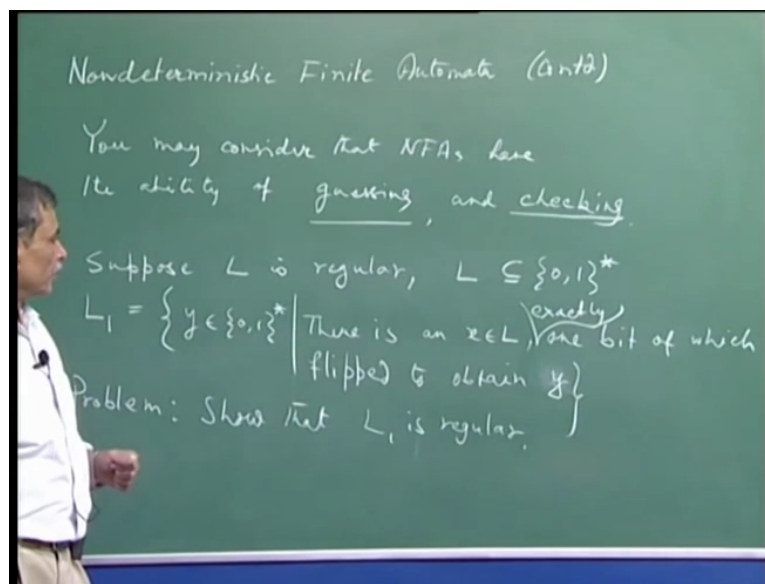 Nondeterministic Finite Automata (Contd)
You may consider that NFAs have
the ability of guessing, and checking.
Suppose L is regular, L ⊆ {0,1}*
L₁ = { y ∈ {0,1}* | There is an x ∈ L, exactly one bit of which
flipped to obtain y }
Problem: Show that L₁ is regular.